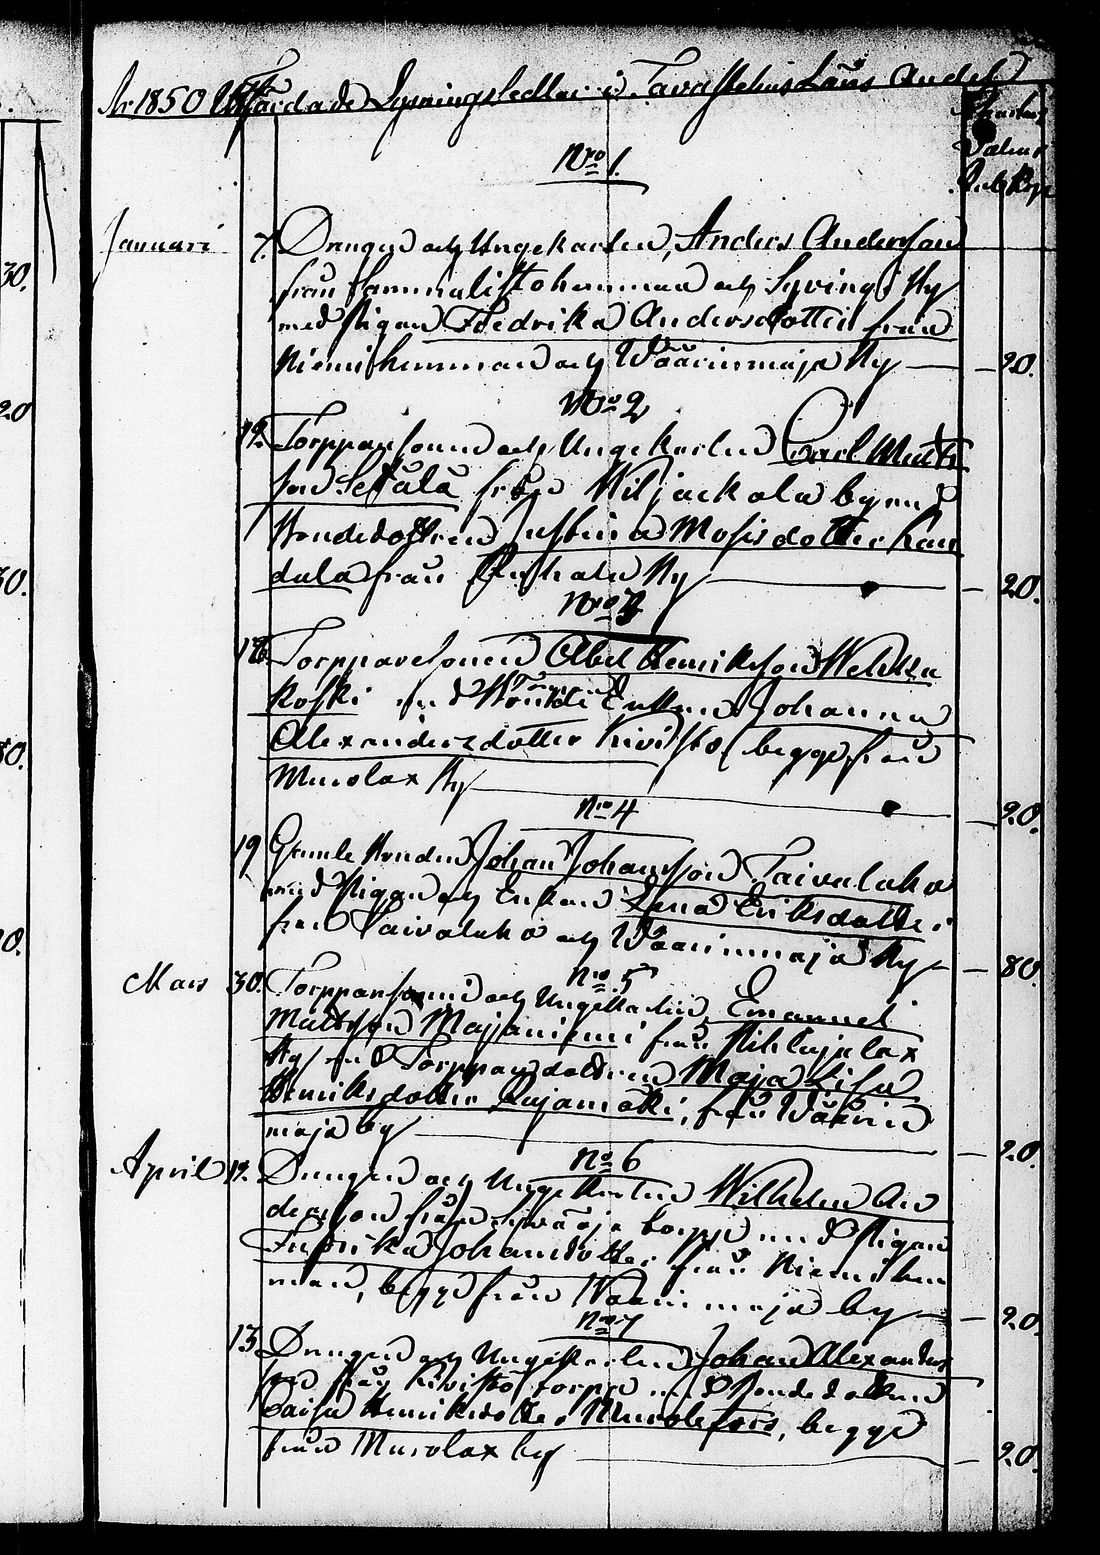 År 1850 Utfärdade Lysningssedlar i Tavastehus Läns Andel
Nro 1.
Januari 7. Drängen och Ungekarlen, Anders Andersson
från hemman och by
med Pigan Fredrika Andersdotter från
Niemis hemman och Wäärinmaja By — 20.
Nro 2
12. Torpparsonen och Ungekarlen Carl Matts
son Setälä från Wiljackala by med
Bondedottren Justina Mosisdotter Kau
dala från By — 20.
Nro 3
18. Torpparesonen Abel Henriksson
koski med Enkan Johanna
Alexandersdotter Kivistö begge från
Murolax By — 20.
Nro 4
19 Gamle Bonden Johan Johansson Taivalaho
med Pigan och Enkan Lena Eriksdotter
från Taivalaho och Wäärinmaja By — 80.
Nro 5
Mars 30. Torpparsonen och Ungekarlen Emanuel
Mattsson Majaniemi från Pihlajalax
By med Torppardottren Maja Lisa
Henriksdotter Rajamäki, från Wäärin
maja by — 20.
Nro 6
April 12. Drängen och Ungekarlen Wilhelm An
dersson från torpp med Pigan
Fredrika Johansdotter från Niemi hem
man, begge från Wäärinmaja by — 20.
Nro 7
13. Drängen och Ungekarlen Johan Alexanders
son från Kivistö torpp med Bondedottren
Caisa Henriksdotter Murole fors, begge
från Murolax by — 20.
30.
20
50.
80.
20.